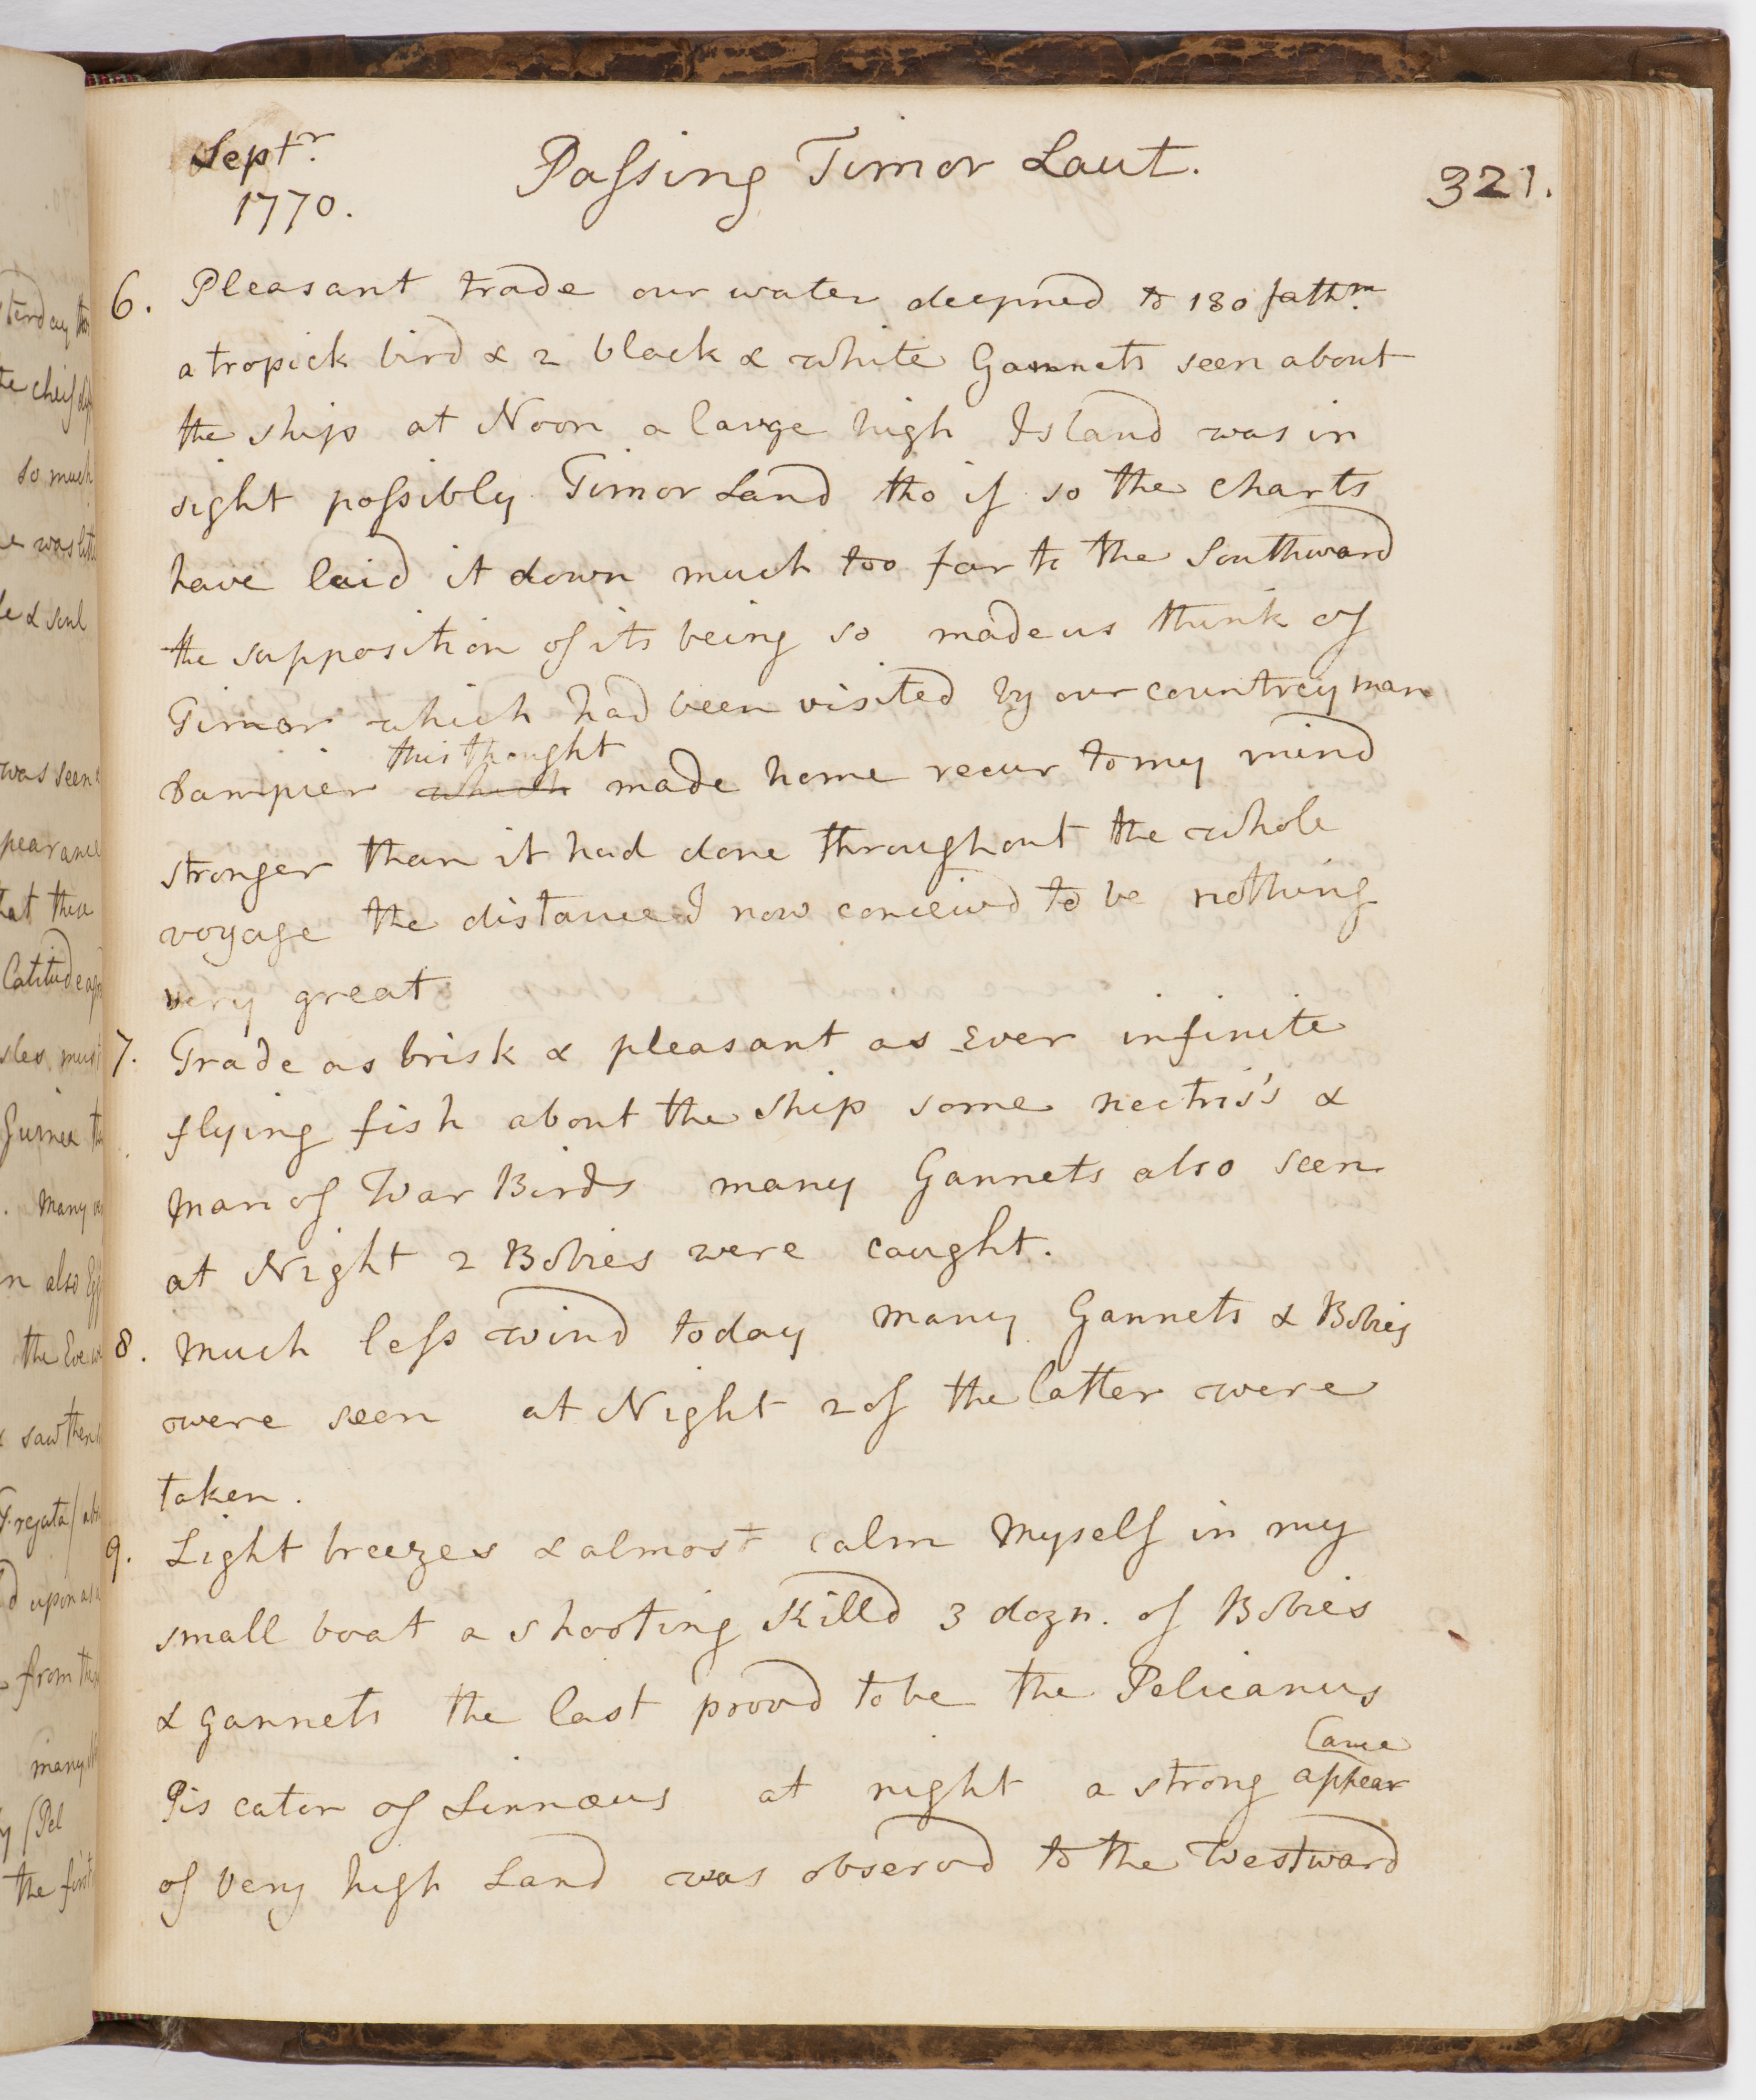 Septr.
1770.
Passing Timor Laut.
321.
6. Pleasant trade our water deepned to 130 fathm.
a tropick bird & 2 black & white Gannets seen about
the ship at Noon a large high Island was in
sight possibly Timor Land tho if so the charts
have laid it down much too far to the Southward
the supposition of its being so made us think of
Timor which had been visited by our countrey man
this thought
Dampier which made home recur to my mind
stronger than it had done throughout the whole
voyage the distance I now conceivd to be nothing
very great
7. Trade as brisk & pleasant as Ever infinite
flying fish about the ship some nectris's &
Man of War Birds many Gannets also seen
at Night 2 Bobies were caught.
8. Much less wind today many Gannets & Bobies
were seen at Night 2 of the latter were
taken.
9. Light breezes & almost calm Myself in my
small boat a shooting Killd 3 dozn. of Bobies
& gannets the last provd to be the Pelicanus
ance
Piscator of Linnæus at night a strong appear
of very high Land was observd to the Westward
so much
was seen
Latitude
many
also
the Eve
saw them
from
many
Pel
the first